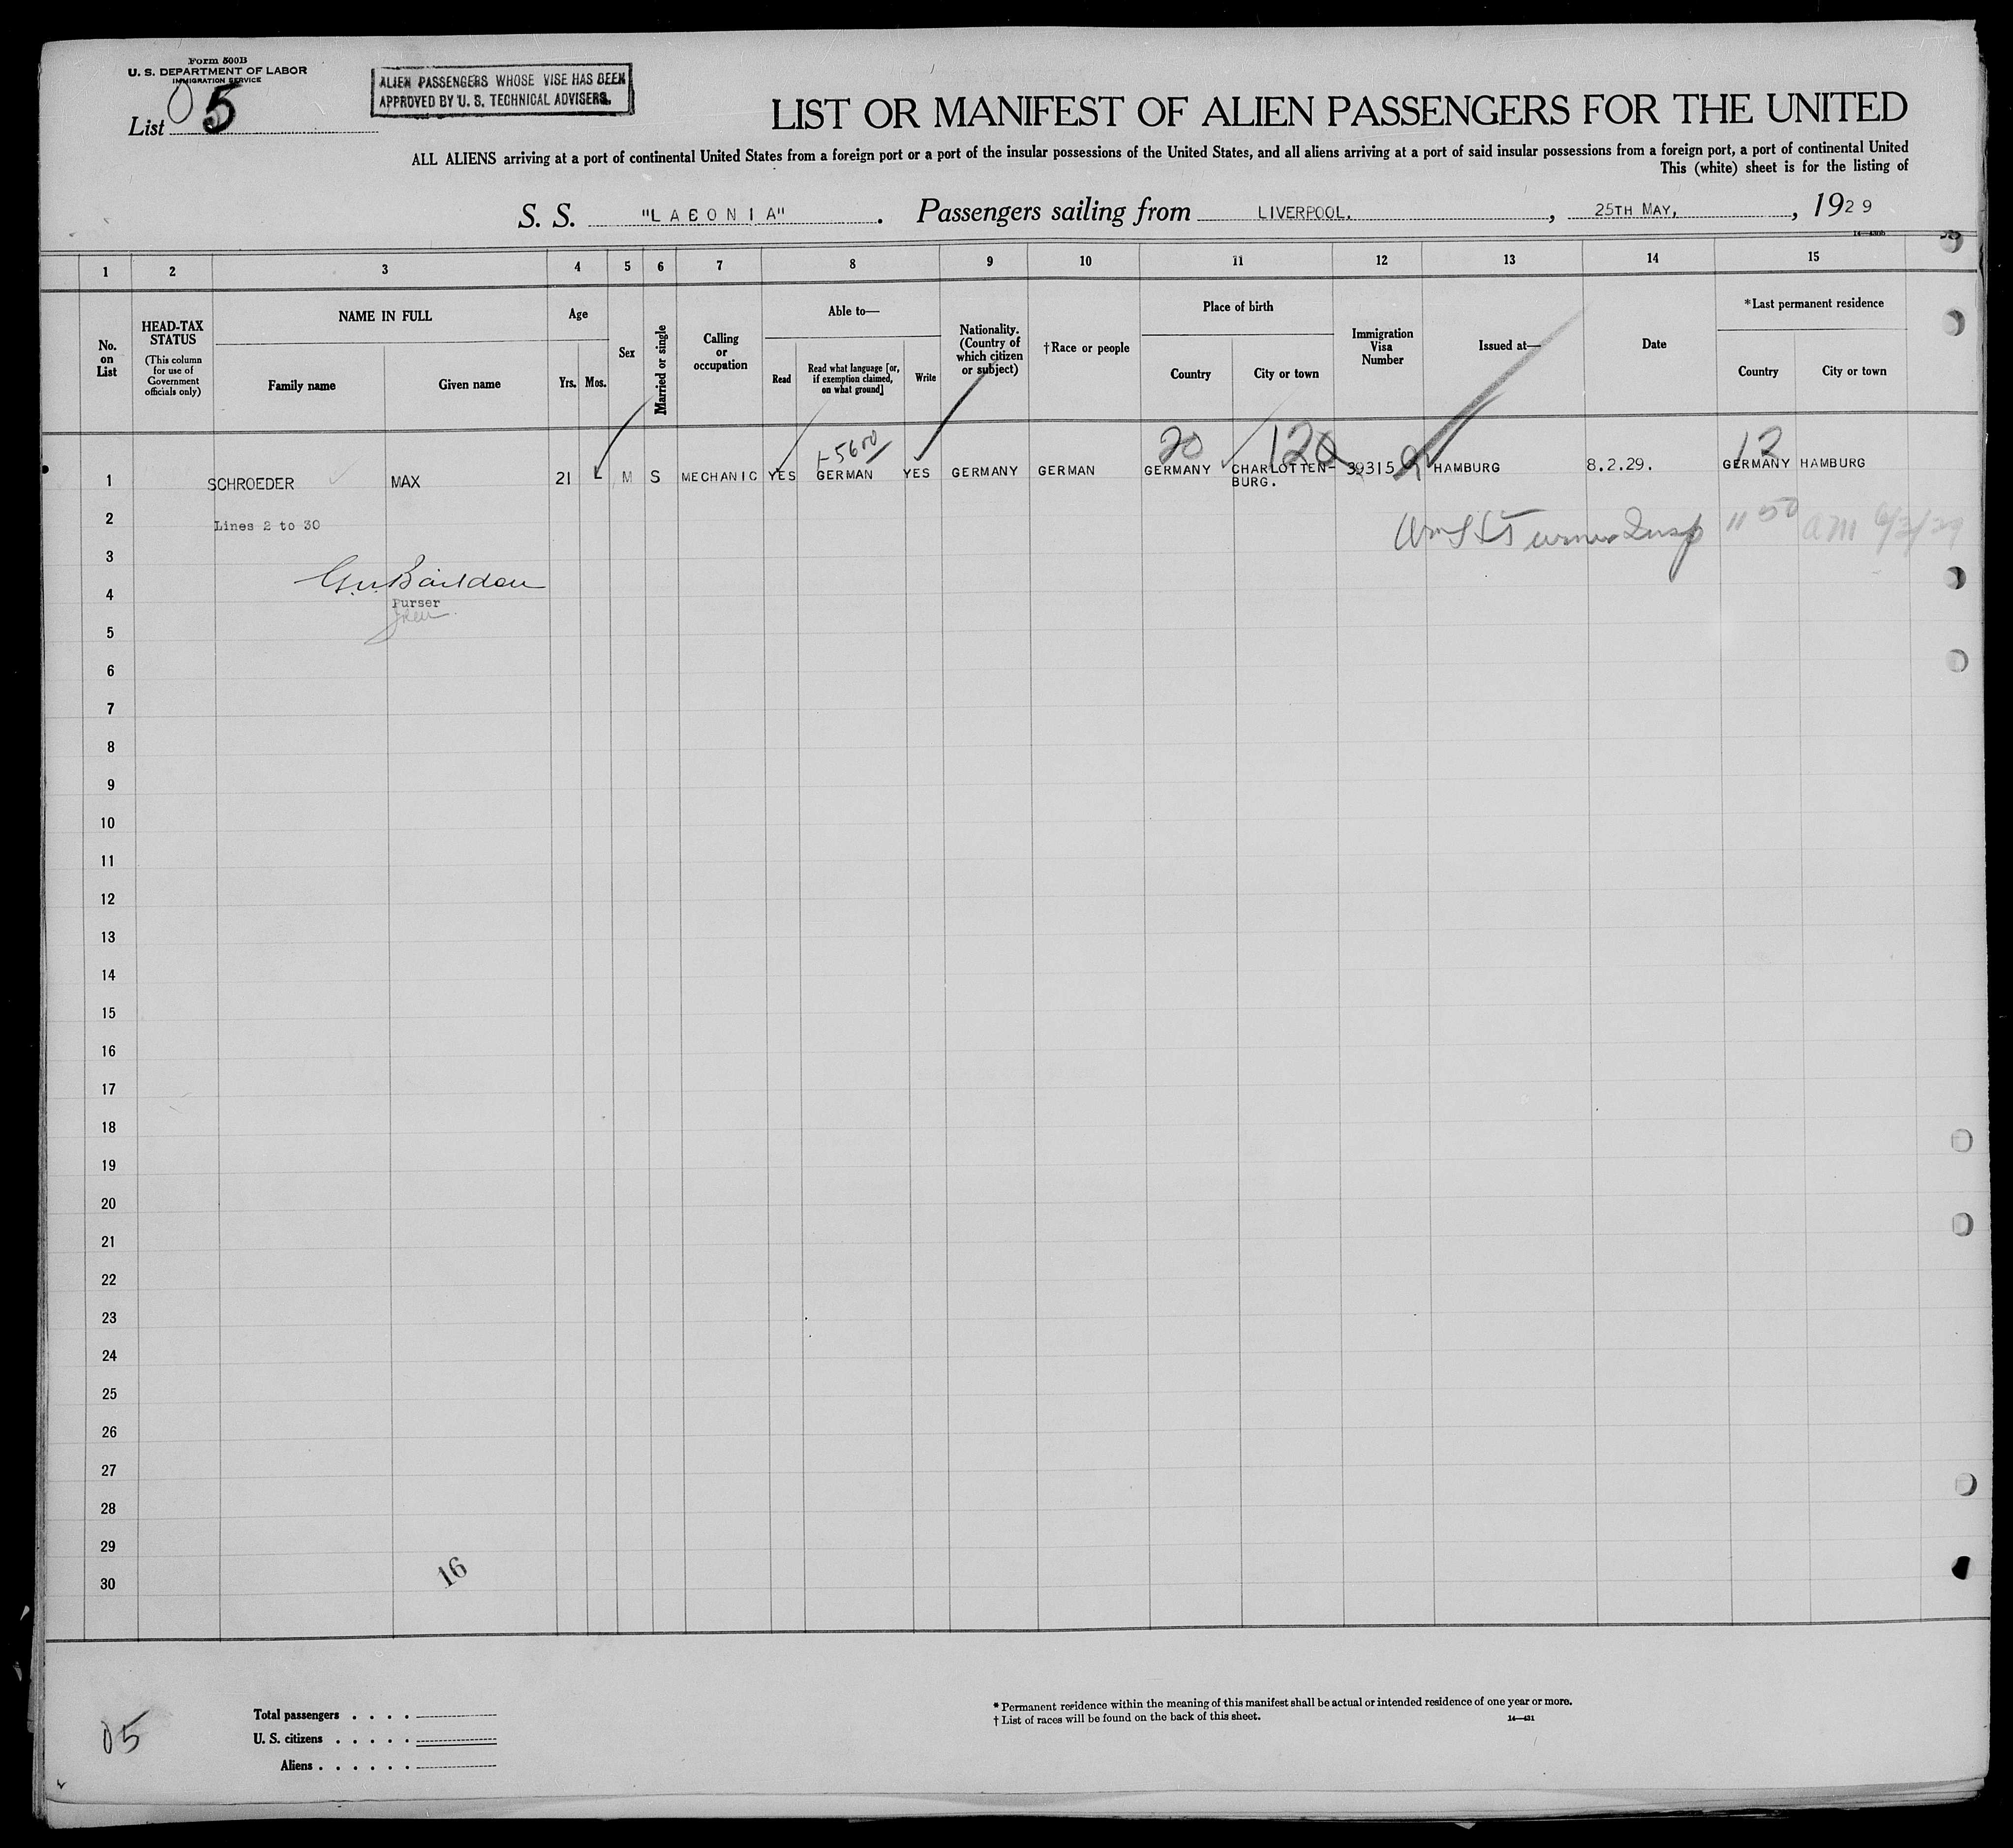 Form 500B
U. S. DEPARTMENT OF LABOR
IMMIGRATION SERVICE
List 05
ALIEN PASSENGERS WHOSE VISE HAS BEEN
APPROVED BY U. S. TECHNICAL ADVISERS.
LIST OR MANIFEST OF ALIEN PASSENGERS FOR THE UNITED
ALL ALIENS arriving at a port of continental United States from a foreign port or a port of the insular possessions of the United States, and all aliens arriving at a port of said insular possessions from a foreign port, a port of continental United
This (white) sheet is for the listing of
S. S. "LACONIA". Passengers sailing from LIVERPOOL., 25TH MAY,, 1929
1 2 3 4 5 6 7 8 9 10 11 12 13 14 15
No. on List
HEAD-TAX STATUS
(This column for use of Government officials only)
NAME IN FULL
Family name Given name
Age
Yrs. Mos.
Sex
Married or single
Calling or occupation
Able to—
Read
Read what language [or, if exemption claimed, on what ground]
Write
Nationality. (Country of which citizen or subject)
†Race or people
Place of birth
Country City or town
Immigration Visa Number
Issued at—
Date
*Last permanent residence
Country City or town
20 120 12
1 SCHROEDER MAX 21 M S MECHANIC YES GERMAN YES GERMANY GERMAN GERMANY CHARLOTTEN- 39315 HAMBURG 8.2.29. GERMANY HAMBURG
BURG.
2 Lines 2 to 30
3
4
Purser
5
6
7
8
9
10
11
12
13
14
15
16
17
18
19
20
21
22
23
24
25
26
27
28
29
30
16
05
Total passengers . . . .
U. S. citizens . . . . .
Aliens . . . . . .
* Permanent residence within the meaning of this manifest shall be actual or intended residence of one year or more.
† List of races will be found on the back of this sheet.
14—431